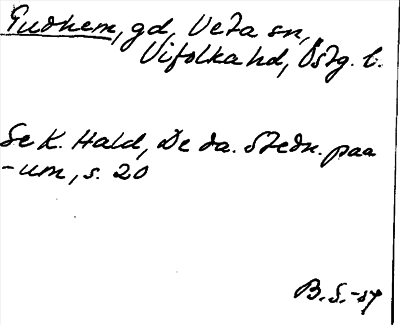 Gudhem, gd, Veta sn,
Vifolka hd, Östg. l.
Se K. Hald, De da. Stedn. paa
-um, s. 20
B. S.-sy